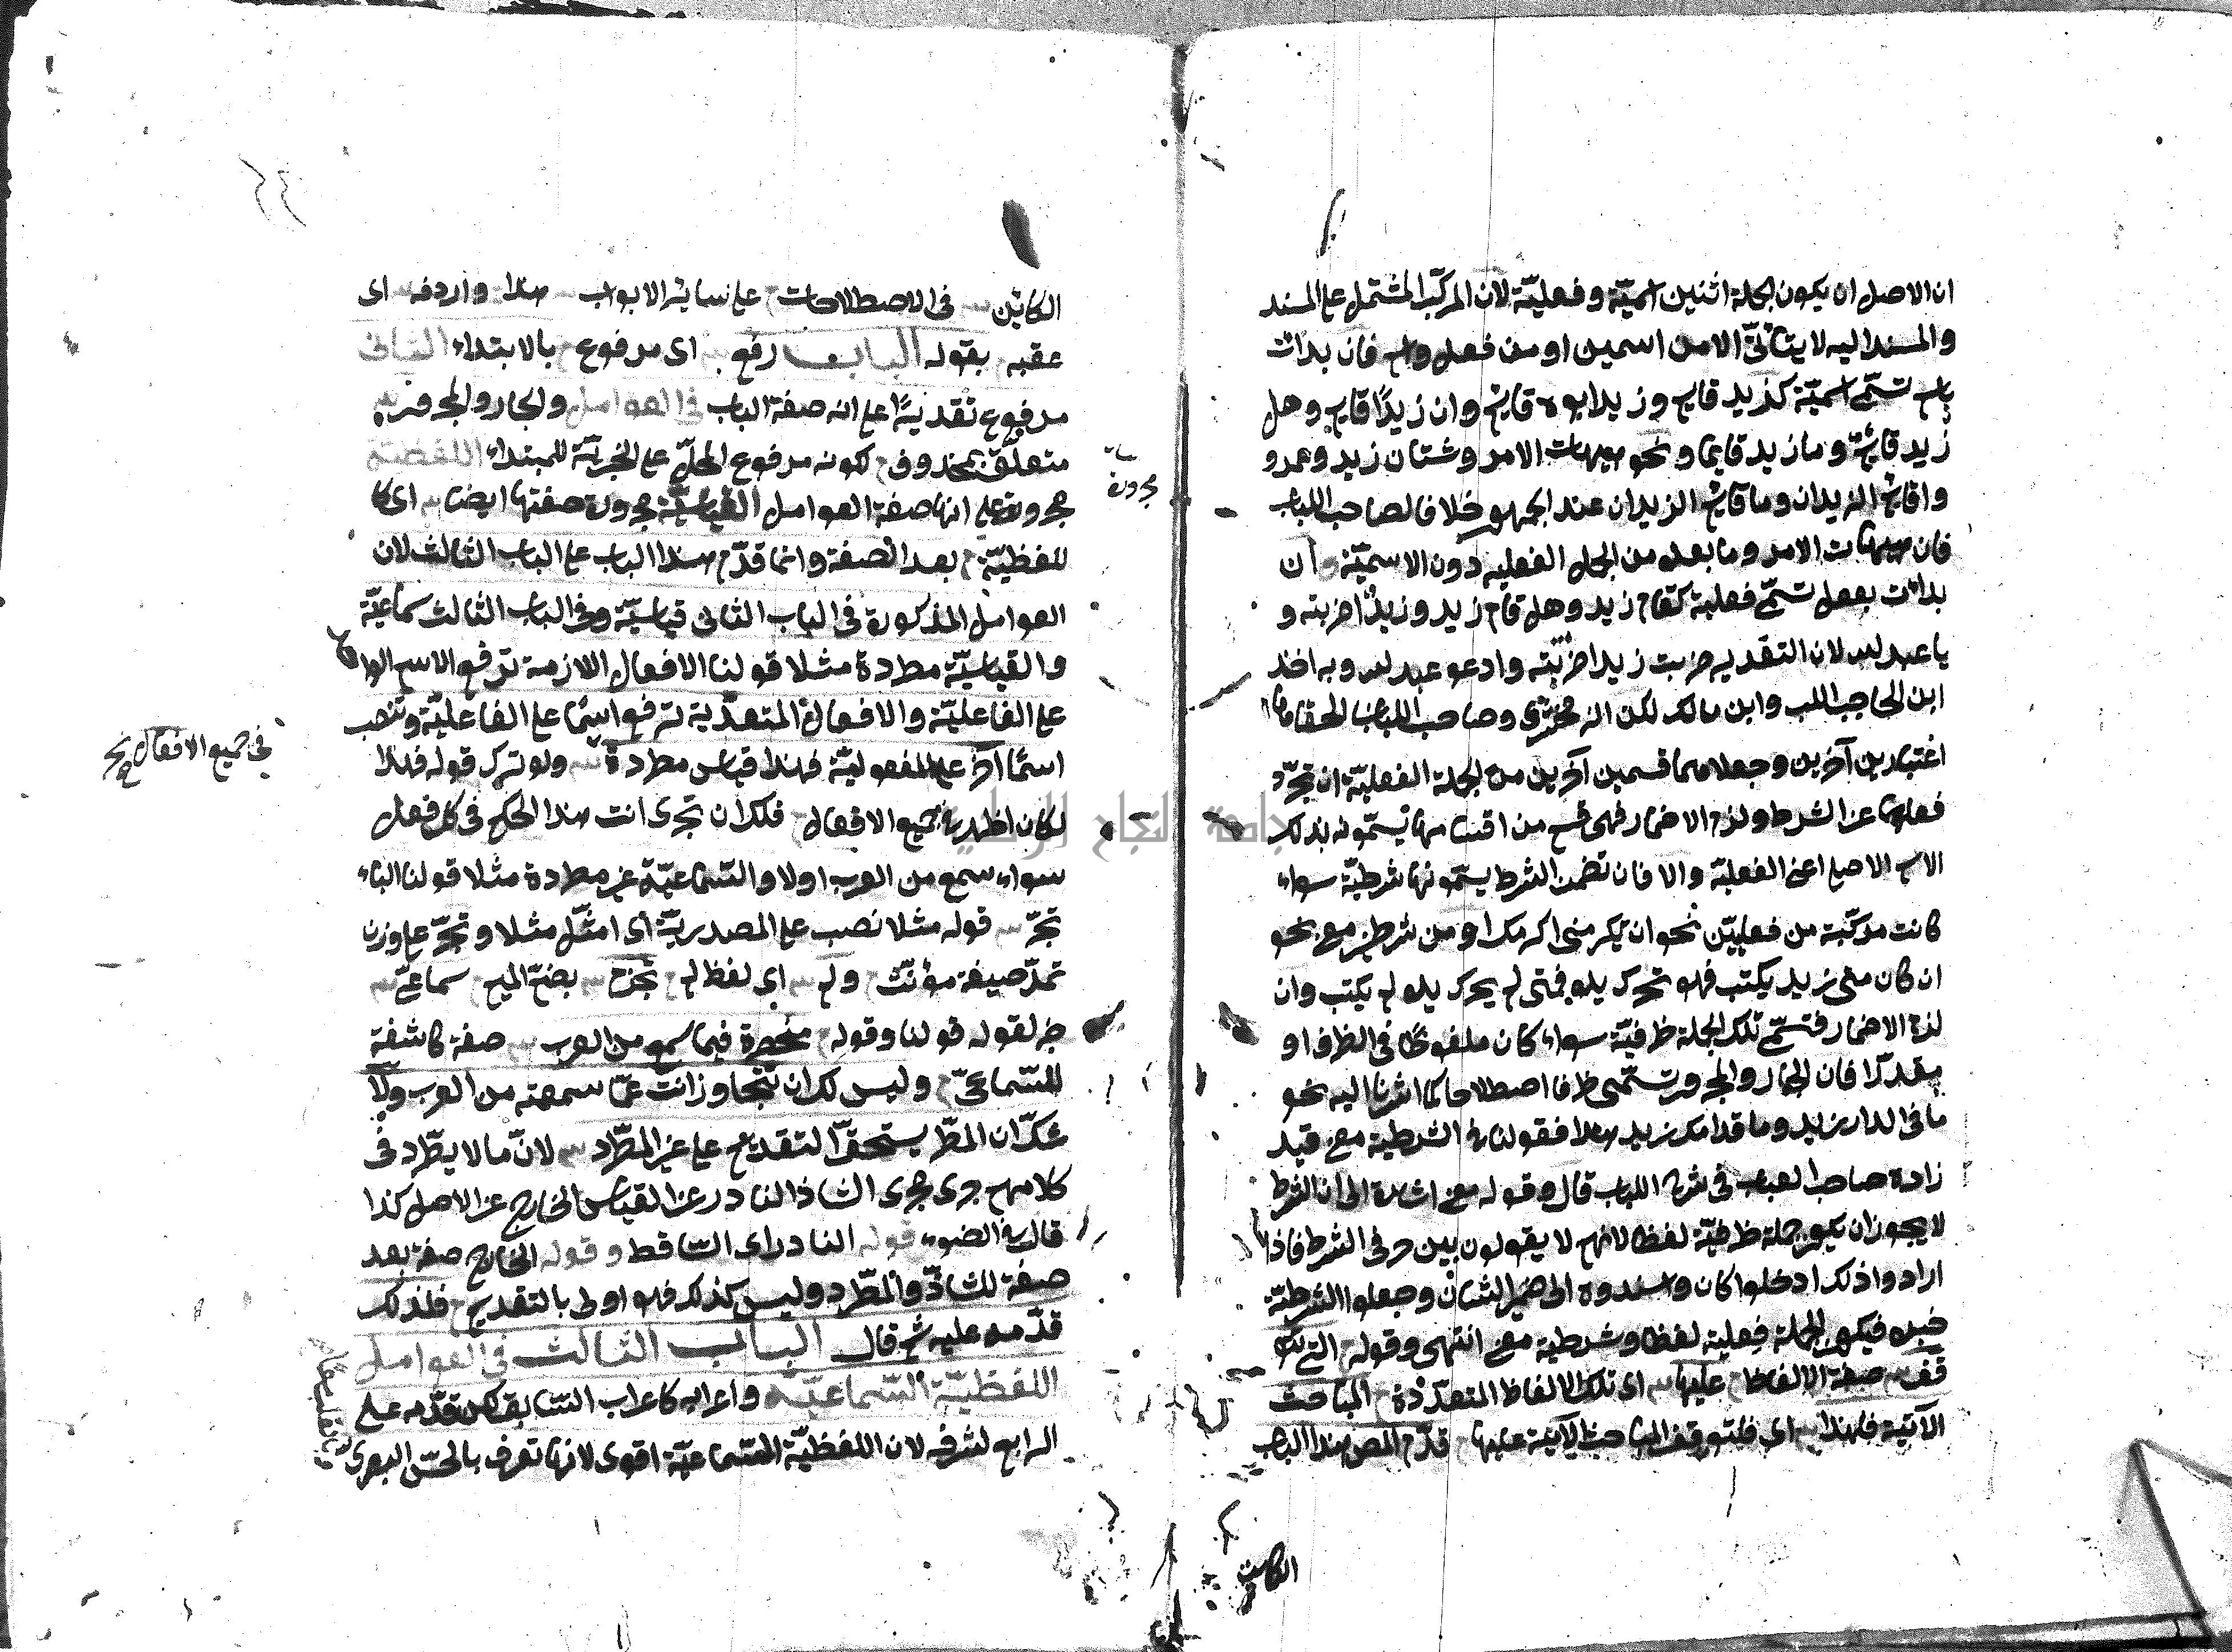 ان الاصل ان يكون الجملة اثنين اسميّة وفعليّة لان المركّب المشتمل على المسند
والمسند اليه لا يتأتّى الا من اسمين او من فعل واسم فان بدأت
باسم تسمّى اسميّة كزيد قايم وزيد ابوه قايم وان زيدًا قايم وهل
زيد قائم وما زيد قايما ونحو هيهات الامر وشتان زيد وعمرو
واقائم الزيدان وما قائم الزيدان عند الجمهور خلافا لصاحب اللباب
فان هيهات الامر وما بعده من الجمل الفعليه دون الاسميّة وان
بدأت بفعل تسمّى فعلية كقام زيد وهل قام زيد وزيدا ضربته و
يا عبد الله لان التقدير ضربت زيدا ضربته وادعو عبد الله وبه اخذ
ابن الحاجب وابن مالك لكن الزمخشرى وصاحب اللباب الحقا
اعتبارين آخرين وجعلاهما قسمين آخرين من الجملة الفعليّة ان تجرّد
فعلها عن الشرط ولزم الاضمار فهى قسم من اقسامها يسمّونه بذلك
الاسم الاصلى اعنى الفعليّة والا فان تضمن الشرط يسمّونها شرطيّة سواء
كانت مركّبة من فعليتين نحو ان تكرمنى اكرمك او من شرطيتين معنى نحو
ان كان متى زيد يكتب فهو تحرك يده فمتى لم يحرك يده لم يكتب وان
لزم الاضمار فتسمّى تلك الجملة ظرفيّة سواء كان ملفوظًا فى الظرف او
مقدرًا فان الجار والمجرور تسمّى ظرفا اصطلاحا كما اشرنا اليه نحو
ما فى الدار زيد وما قدامك زيد هذا فقولنا فى الشرطية معنى قيد
زاده صاحب العباب فى شرح اللباب قال وقوله معنى اشارة الى ان الشرط
لا يجوز ان يكون جملة ظرفيّة لفظا لانهم لا يقولون بين حرفى الشرط فاذا
ارادوا ذلك ادخلوا كان واسندوه الى ضمير الشان وجعلوا الشرطيّة
خبره فيكون الجملة فعلية لفظا وشرطية معنى انتهى وقوله التى تتو
قف صفة الالفاظ عليها اى تلك الالفاظ المتعدّدة المباحث
الآتية فلهذا اى فلتوقف المباحث الآتية عليها قدّم المص هذا الباب
الكائن
الكائن فى الاصطلاحات على ساير الابواب هذا واردفه اى
عقبه بقوله الباب رفع اى مرفوع بالابتداء الثانى
مرفوع تقديرًا على انه صفة الباب فى العوامل والجار والمجرور
متعلق بمحذوف لكونه مرفوع المحلّ على الخبريّة للمبتداء اللفظية
مجرورة على انها صفة العوامل القياسيّة مجرورة صفتها ايضا اى كا
للفظيّة بعد الصفة وانما قدّم هذا الباب على الباب الثالث لان
العوامل المذكورة فى الباب الثانى قياسيّة وفى الباب الثالث سماعيّة
والقياسيّة مطردة مثلا قولنا الافعال اللازمة ترفع الاسم الواحد
على الفاعليّة والافعال المتعدّية ترفع اسمًا على الفاعليّة وتنصب
اسمًا آخر على المفعوليّة فهذا قياس مطردة ولو ترك قوله فهذا
لكان اظهر فى جميع الافعال فلك ان تجرى انت هذا الحكم فى كل فعل
سواء سمع من العرب اولا والسّماعيّة غير مطردة مثلا قولنا الباء
تجرّ قوله مثلا نصب على المصدريّة اى امثّل مثلا وتجرّ على وزن
تمدّ صيغة مؤنّث ولم اى لفظ لم تجزم بضمّ الميم سماعىّ
خبر لقوله قولنا وقوله منحصرة فيما سمع من العرب صفة كاشفة
للسّماعىّ وليس لك ان تتجاوز انت عمّا سمعته من العرب ولا
شكّ ان المطّرد يستحقّ التقديم على غير المطّراد لانّ ما لا يطّرد فى
كلامهم جرى مجرى الشاذ النادر عن القياس الخارج عن الاصل كذا
قال فى الضوء قوله النادر اى السّاقط وقوله الخارج صفة بعد
صفة للشاذّ والمطّرد وليس كذلك فهو اولى بالتقديم فلذلك
قدّمه عليه ثم قال الباب الثالث فى العوامل
اللفظيّة السّماعيّة واعرابه كاعراب السّابق لكن قدّمه على
الرابع لشرفه لان اللفظيّة السّماعيّة اقوى لانها تعرف بالحسّ البصرى
مجرورة
فى جميع الافعال
جامعة النجاح الوطنية